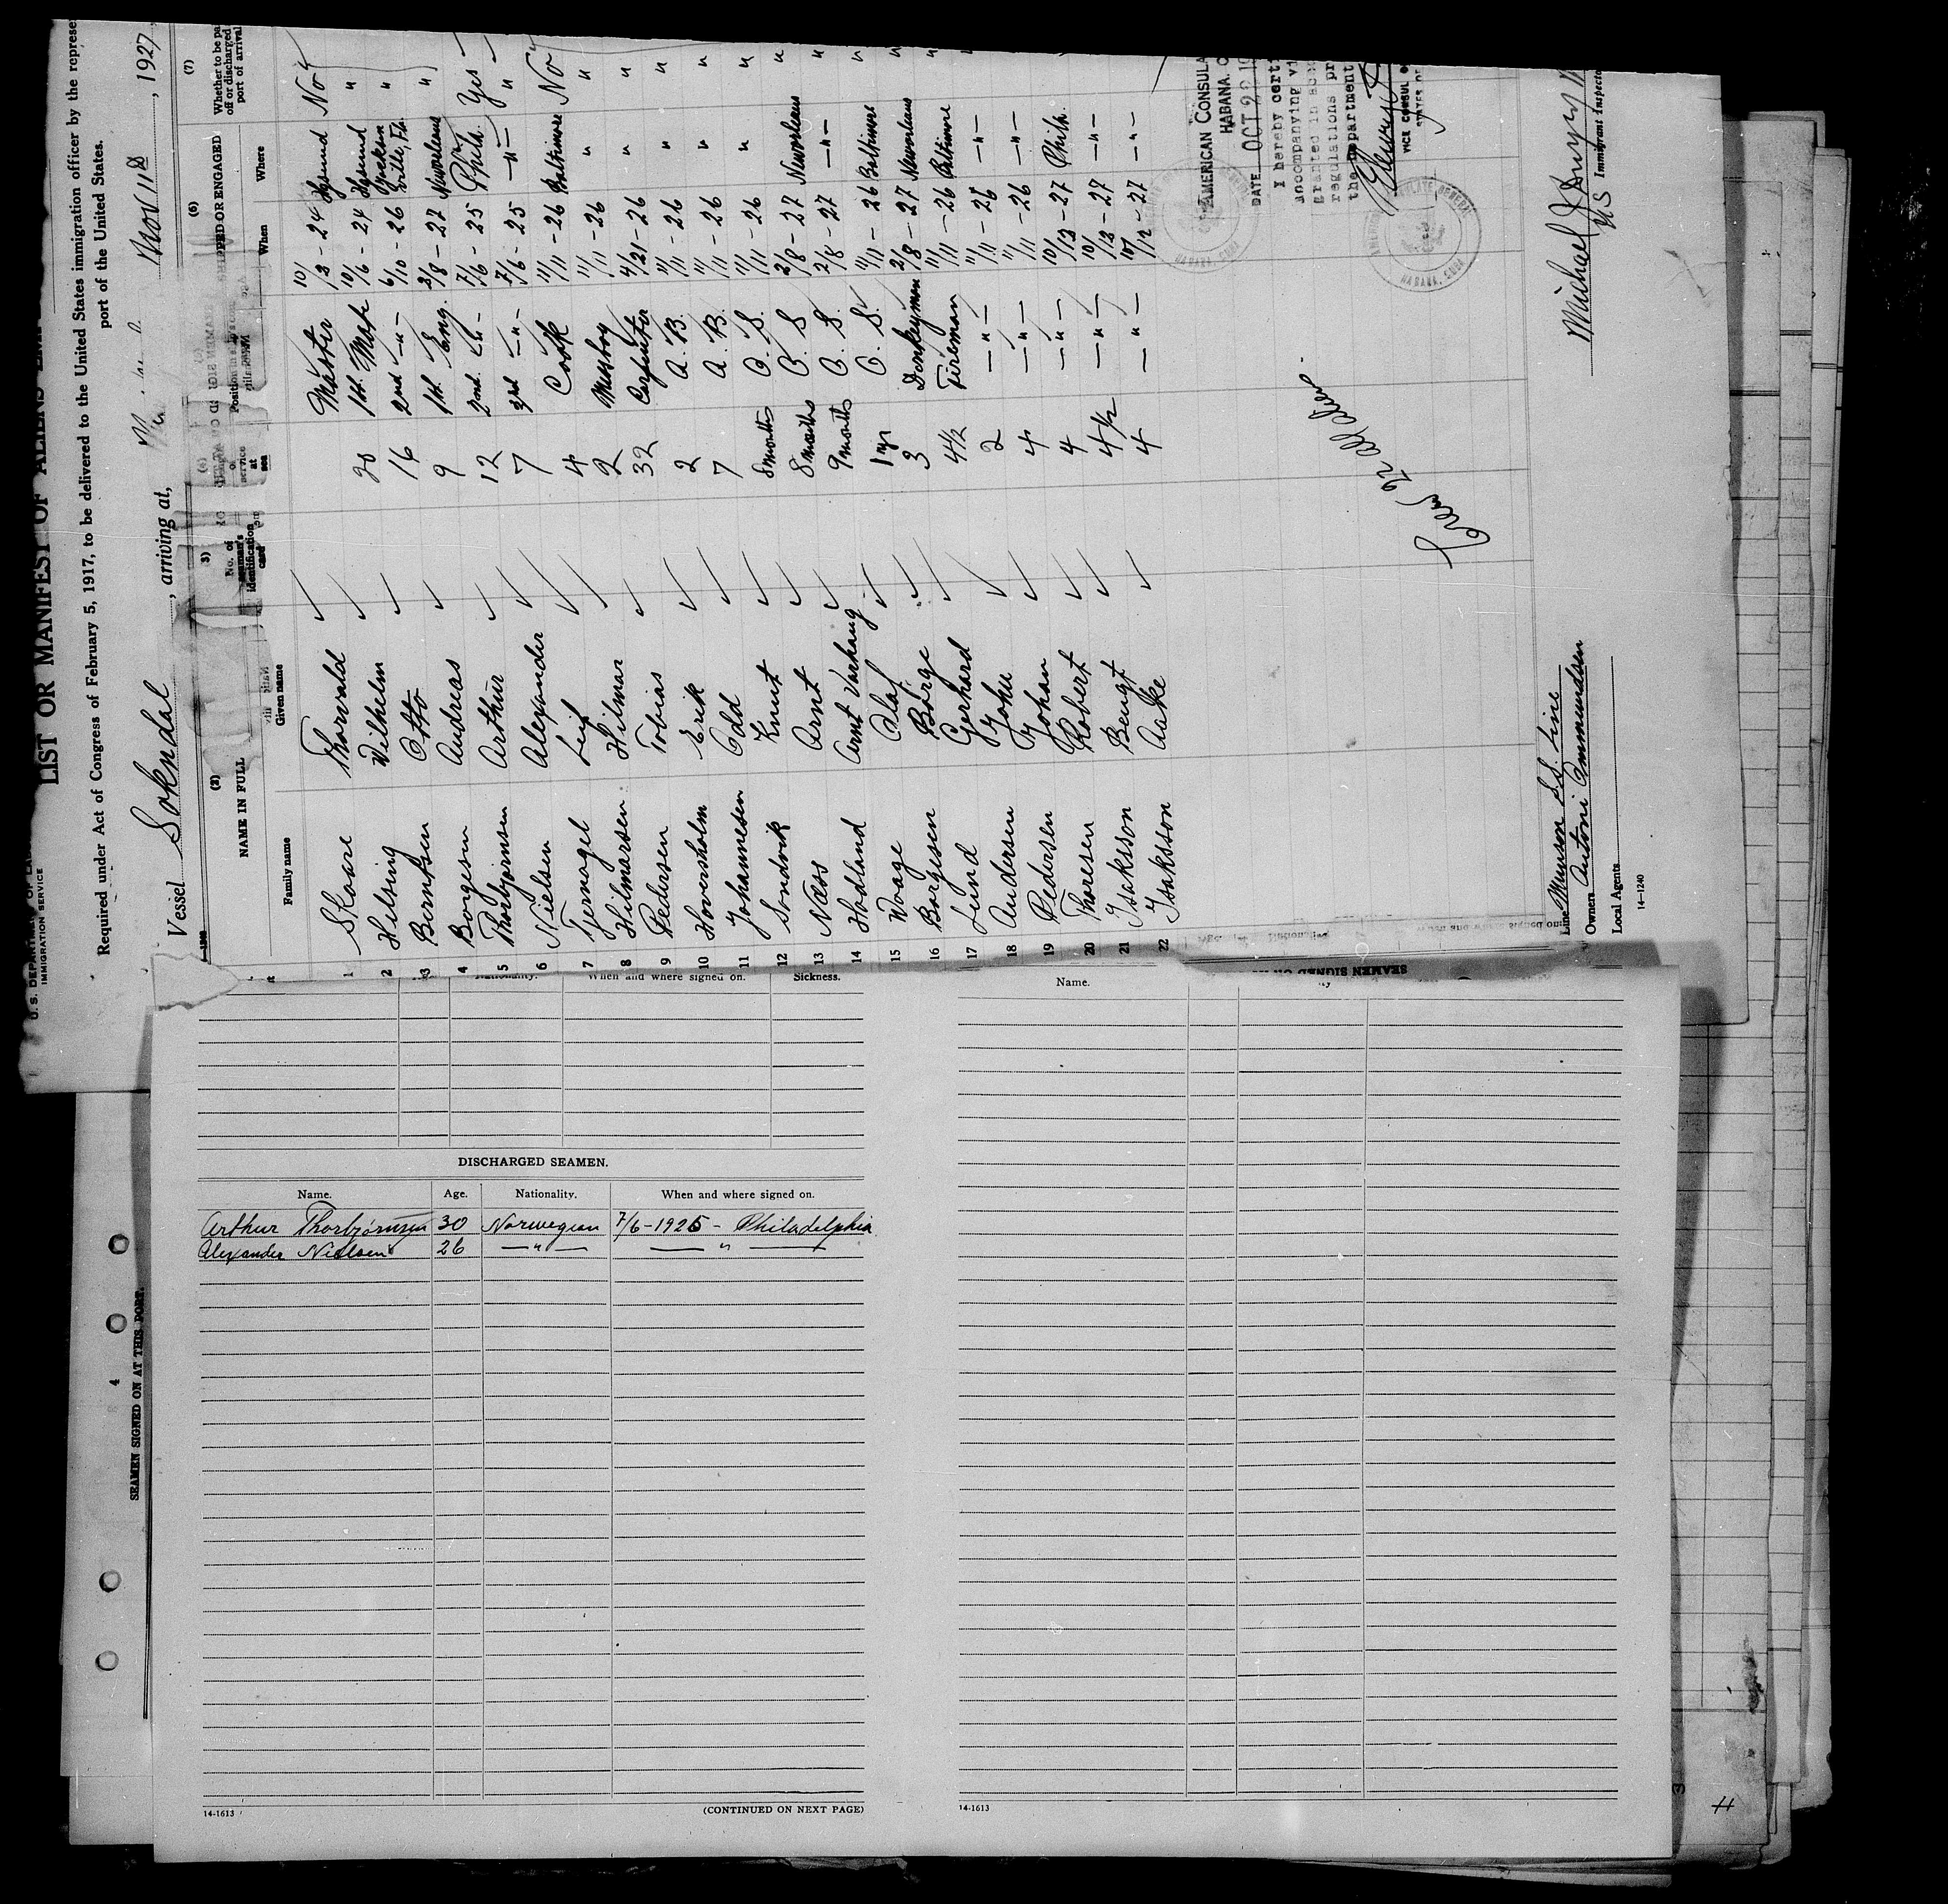 U. S. DEPARTMENT OF
IMMIGRATION SERVICE
LIST OR MANIFEST OF ALIENS
Required under Act of Congress of February 5, 1917, to be delivered to the United States immigration officer by the represe
port of the United States.
Vessel Sokndal, arriving at, Nov 11th, 1927
(2) (3) (4) (6) (7)
NAME IN FULL
Family name Given name
No. of seaman's identification card
of service at sea
Position in
SHIPPED OR ENGAGED
When Where
Whether to be pa
off or discharged
port of arrival
1 Skaare Thorvald 20 Master 10/13 - 24 No
2 Helsing Wilhelm 16 1st. Mate 10/6 - 24 "
3 Berntsen Otto 9 2nd —"— 6/10 - 26 Jacksonville, Fla. "
4 Borgesen Andreas 12 1st. Eng. 2/8 - 27 Neworleans "
5 Thorbjørnsen Arthur 7 2nd. —"— 7/6 - 25 Phila. Yes
6 Nielsen Alexander 4 3rd —"— 7/6 - 25 —"— "
7 Tjernagel Leif 2 Cook 11/11 - 26 Baltimore No
8 Hilmarsen Hilmar 32 Messboy 11/11 - 26 " "
9 Pedersen Tobias 2 Carpenter 4/21 - 26 " "
10 Hoversholm Erik 7 A. B. 11/11 - 26 " "
11 Johannesen Odd 8 months A. B. 11/11 - 26 " "
12 Sondvik Knut 8 months O. S. 11/11 - 26 " "
13 Næss Arnt 9 months O. S. 2/8 - 27 Neworleans "
14 Hodland Arnt Varhaug 1 yr O. S. 2/8 - 27 —"— "
15 Waage Olaf 3 O. S. 11/11 - 26 Baltimore "
16 Borgesen Børge 4½ Donkeyman 2/8 - 27 Neworleans "
17 Lund Gerhard 2 Fireman 11/11 - 26 Baltimore "
18 Andersen John 4 —"— 11/11 - 26 —"—
19 Pedersen Johan 4 —"— 11/11 - 26 —"—
20 Thoresen Robert 4½ —"— 10/13 - 27 Phila.
21 Isaksson Bengt 4 —"— 10/13 - 27 —"—
22 Isaksson Aake —"— 10/12 - 27 —"—
AMERICAN CONSULA
HABANA, C
DATE OCT 22 19
I hereby certi
accompanying vi
granted in acc
regulations pr
the Department
VICE CONSUL
HABANA, CUBA
HABANA, CUBA
Crew 22 all told
Line Munson S.S. Line
Owners Antoni Ammundsen
Local Agents
Michael J
US Immigrant Inspecto
14—1240
When and where signed on. Sickness.
DISCHARGED SEAMEN.
Name. Age. Nationality. When and where signed on.
Arthur Thorbjörnsen 30 Norwegian 7/6-1925 - Philadelphia
Alexander Nielsen 26 —"— —"—
14-1613 (CONTINUED ON NEXT PAGE)
Name.
14-1613
4
SEAMEN SIGNED ON AT THIS PORT.
3